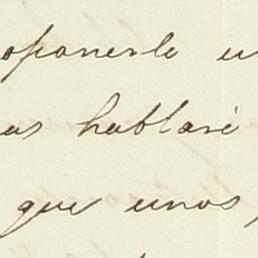 oponerle u
as hablaré
que unos,